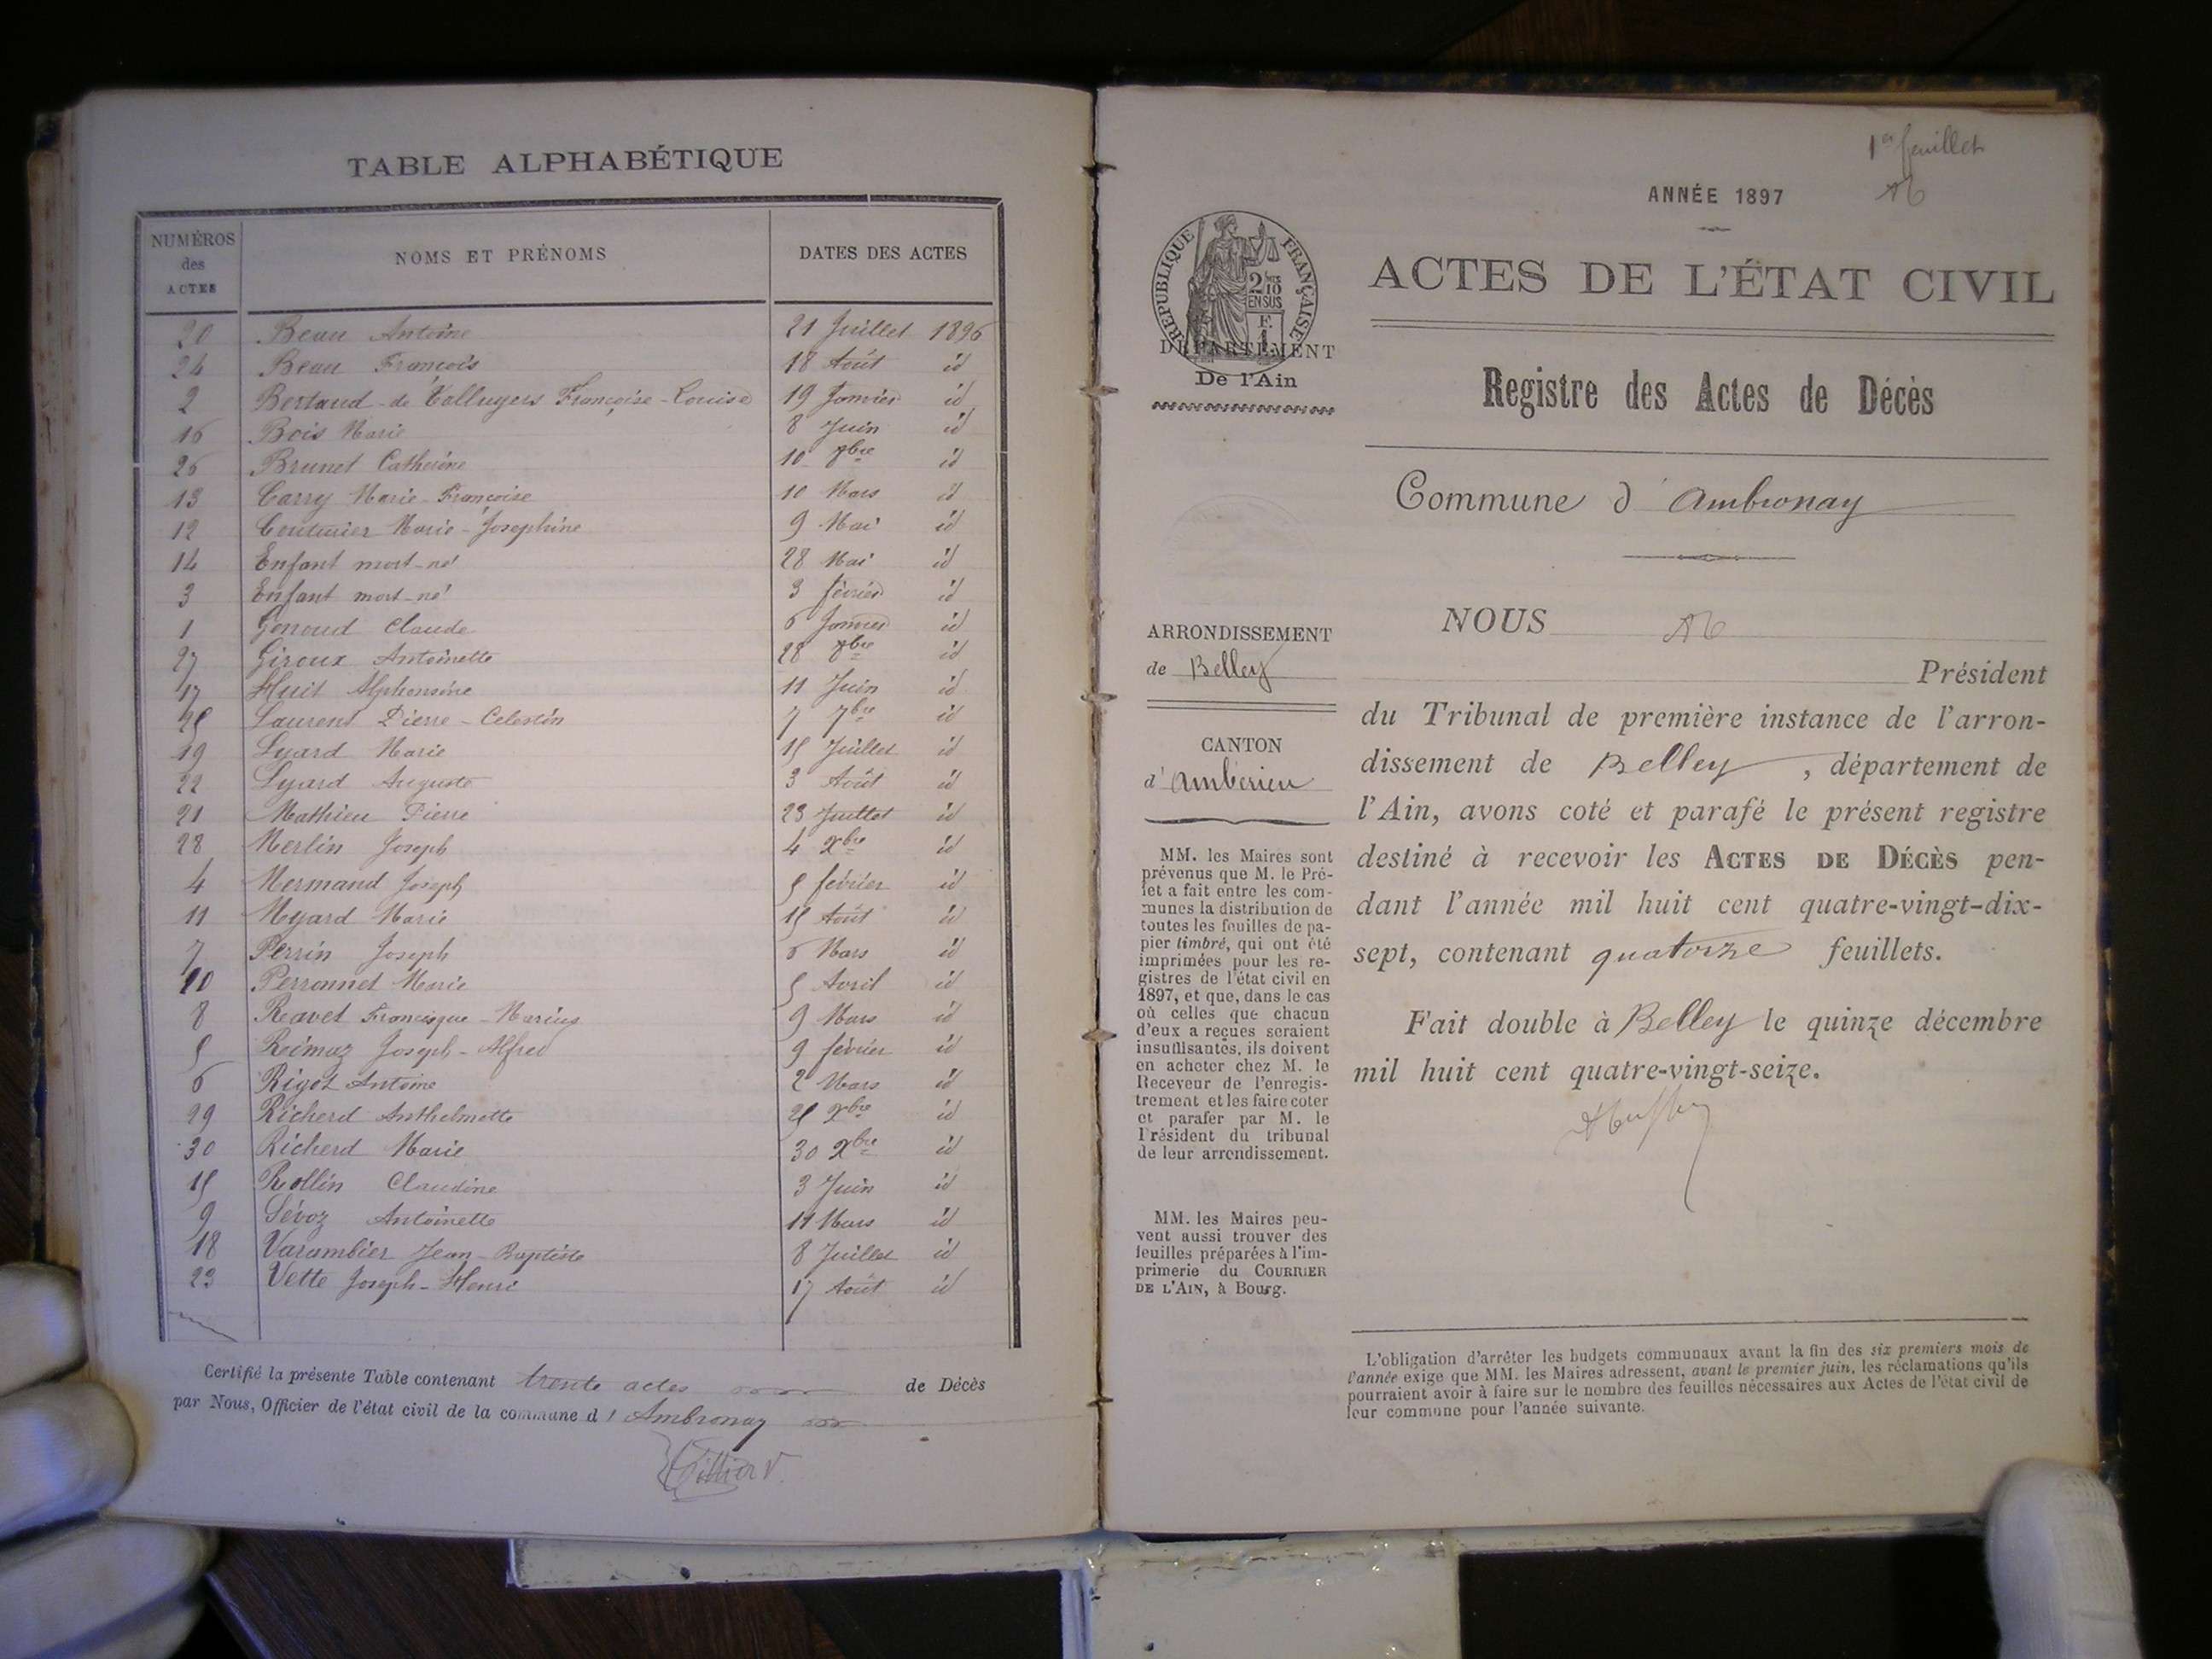 TABLE ALPHABÉTIQUE
NUMÉROS des ACTES NOMS ET PRÉNOMS DATES DES ACTES
20 Beau Antoine 21 Juillet 1896
24 Beau François 18 Août id
2 Bertaud-de Talluyers Françoise-Louise 19 Janvier id
16 Bois Marie 8 Juin id
26 Brunet Catherine 10 8bre id
13 Carry Marie-Françoise 10 Mars id
12 Couturier Marie-Joséphine 9 Mai id
14 Enfant mort-né 28 Mai id
3 Enfant mort-né 3 février id
1 Genoud Claude 6 Janvier id
27 Giroux Antoinette 28 8bre id
17 Huit Alphonsine 11 Juin id
25 Laurent Pierre-Celestin 7 7bre id
19 Lyard Marie 15 Juillet id
22 Lyard Auguste 3 Août id
21 Mathieu Pierre 23 Juillet id
28 Merlin Joseph 4 Xbre id
4 Mermand Joseph 5 février id
11 Myard Marie 15 Août id
7 Perrin Joseph 6 Mars id
10 Perronnet Marie 5 Avril id
8 Ravet Francisque-Marius 9 Mars id
5 Reimaz Joseph-Alfred 9 février id
6 Rigot Antoine 2 Mars id
29 Richerd Anthelmette 25 Xbre id
30 Richerd Marie 30 Xbre id
15 Rollin Claudine 3 Juin id
9 Sévoz Antoinette 11 Mars id
18 Varambier Jean-Baptiste 8 Juillet id
23 Vette Joseph-Henri 17 Août id
Certifié la présente Table contenant trente actes de Décès
par Nous, Officier de l'état civil de la commune d'Ambronay
1er feuillet
ANNÉE 1897
RÉPUBLIQUE FRANÇAISE
2/10 EN SUS
F. 1.
DÉPARTEMENT
De l'Ain
ACTES DE L'ÉTAT CIVIL
Registre des Actes de Décès
Commune d'Ambronay
ARRONDISSEMENT
de Belley
CANTON
d'Ambérieu
MM. les Maires sont
prévenus que M. le Pré-
fet a fait entre les com-
munes la distribution de
toutes les feuilles de pa-
pier timbré, qui ont été
imprimées pour les re-
gistres de l'état civil en
1897, et que, dans le cas
où celles que chacun
d'eux a reçues seraient
insuffisantes, ils doivent
en acheter chez M. le
Receveur de l'enregis-
trement et les faire coter
et parafer par M. le
Président du tribunal
de leur arrondissement.
MM. les Maires peu-
vent aussi trouver des
feuilles préparées à l'im-
primerie du COURRIER
DE L'AIN, à Bourg.
NOUS
Président
du Tribunal de première instance de l'arron-
dissement de Belley, département de
l'Ain, avons coté et parafé le présent registre
destiné à recevoir les ACTES DE DÉCÈS pen-
dant l'année mil huit cent quatre-vingt-dix-
sept, contenant quatorze feuillets.
Fait double à Belley le quinze décembre
mil huit cent quatre-vingt-seize.
L'obligation d'arrêter les budgets communaux avant la fin des six premiers mois de
l'année exige que MM. les Maires adressent, avant le premier juin, les réclamations qu'ils
pourraient avoir à faire sur le nombre des feuilles nécessaires aux Actes de l'état civil de
leur commune pour l'année suivante.